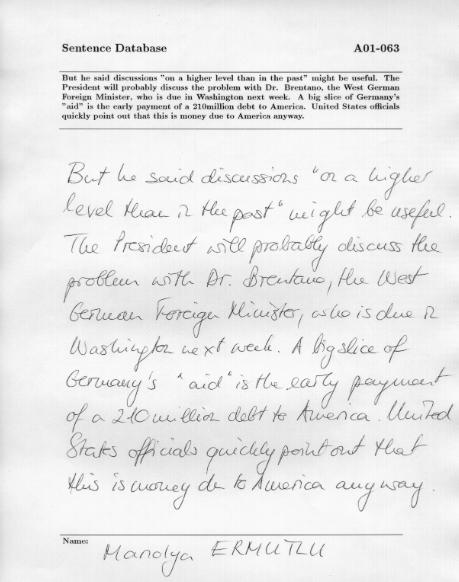 Sentence Database A01-063
But he said discussions "on a higher level than in the past" might be useful. The
President will probably discuss the problem with Dr. Brentano, the West German
Foreign Minister, who is due in Washington next week. A big slice of Germany's
"aid" is the early payment of a 210million debt to America. United States officials
quickly point out that this is money due to America anyway.
But he said discussions "on a higher
level than in the past" might be useful.
The President will probably discuss the
problem with Dr. Brentano, the West
German Foreign Minister, who is due in
Washington next week. A big slice of
Germany's "aid" is the early payment
of a 210 million debt to America. United
States officials quickly point out that
this is money due to America anyway.
Name:
Manolya ERMUTLU